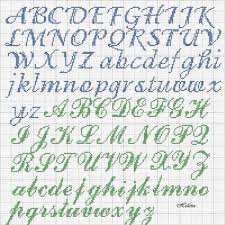 ABCDEFGHIJK
LMNOPQRSTUV
WXYZ abcdefghi
jklmnopqrstuvwx
yz ABCDEFGH
IJKLMNOPQ
RSTUVWXYZ
abcdefghijklmno
pqrstuvwxyz